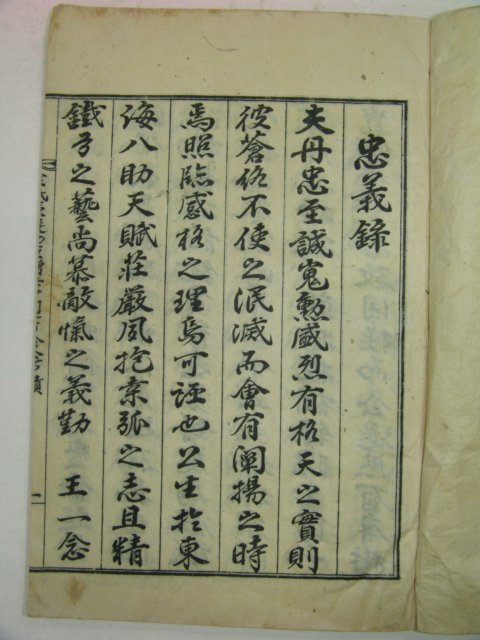 忠義錄
夫丹忠至誠寃勲盛烈有格天之實則
彼蒼終不使之泯滅而會有闡揚之時
焉照臨感格之理烏可誣也公生於東
海八助天賦莊嚴夙抱桑弧之志且精
鐵弓之藝尚慕敵愾之義勤 王一念